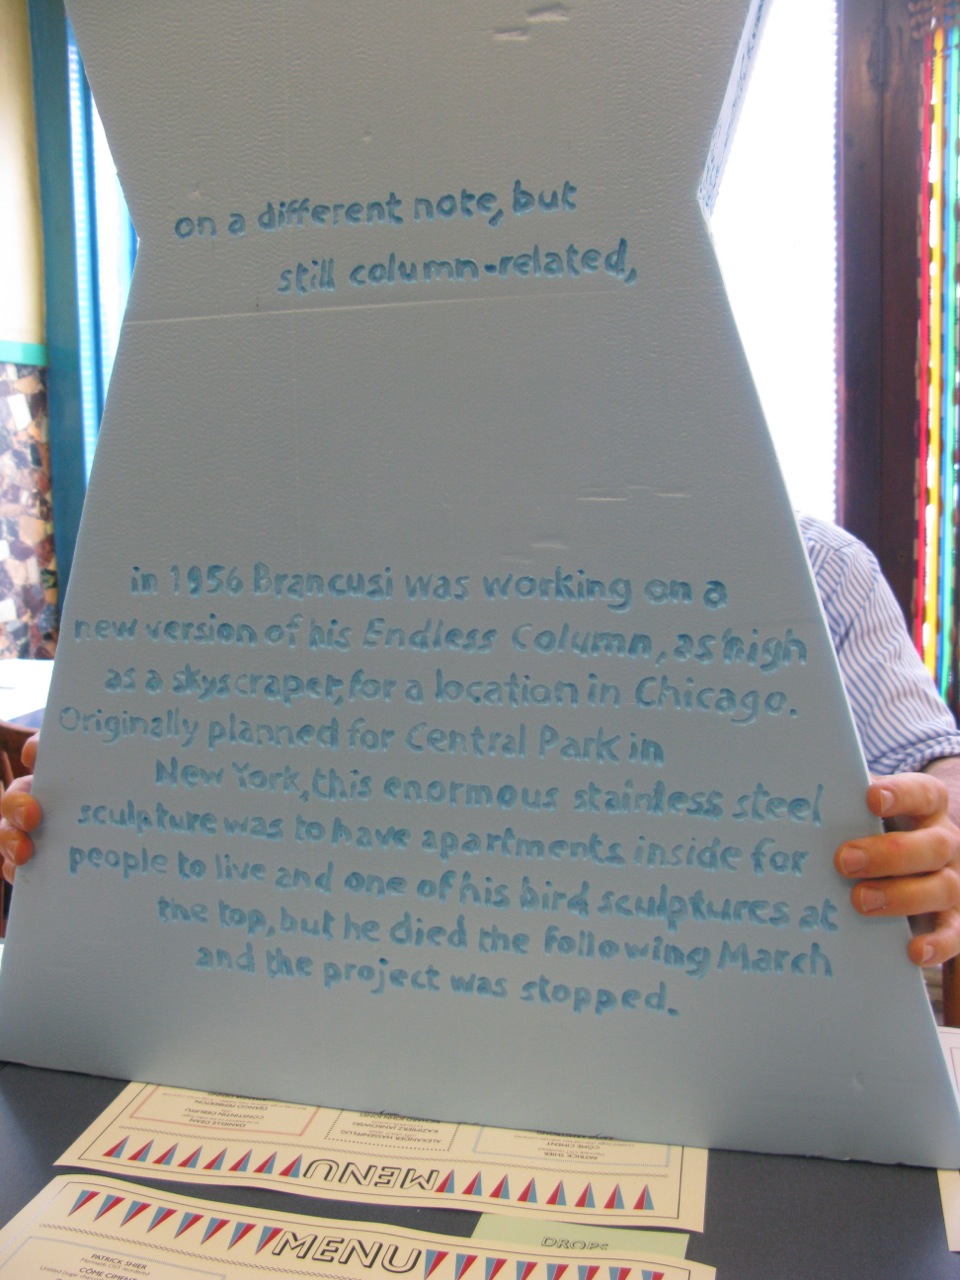 on a different note, but
still column-related,
in 1956 Brancusi was working on a
new version of his Endless Column, as high
as a skyscraper, for a location in Chicago.
Originally planned for Central Park in
New York, this enormous stainless steel
sculpture was to have apartments inside for
people to live and one of his bird sculptures at
the top, but he died the following March
and the project was stopped.
DANIELLE DEAN
CONSTANTIN
ALEXANDER
PATRICK SHIER
CÔME CIMENT
MENU
DROPS
MENU
PATRICK SHIER
CÔME CIMENT